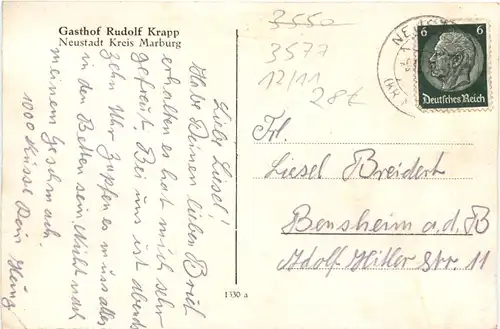 Gasthof Rudolf Krapp
Neustadt Kreis Marburg
3550
3577
12/11
28€
6 6
Deutsches Reich
Liebe Liesel!
Habe Deinen lieben Brief
erhalten es hat mich sehr
gefreut. Bei uns ist abends
zehn Uhr Zapfen es muss alles
in den Betten sein. Nicht nach
meinem Geschmack.
1000 Küsse Dein Heinz
Frl.
Liesel Breidert
Bensheim a.d.B
Adolf Hitler Str. 11
1330 a